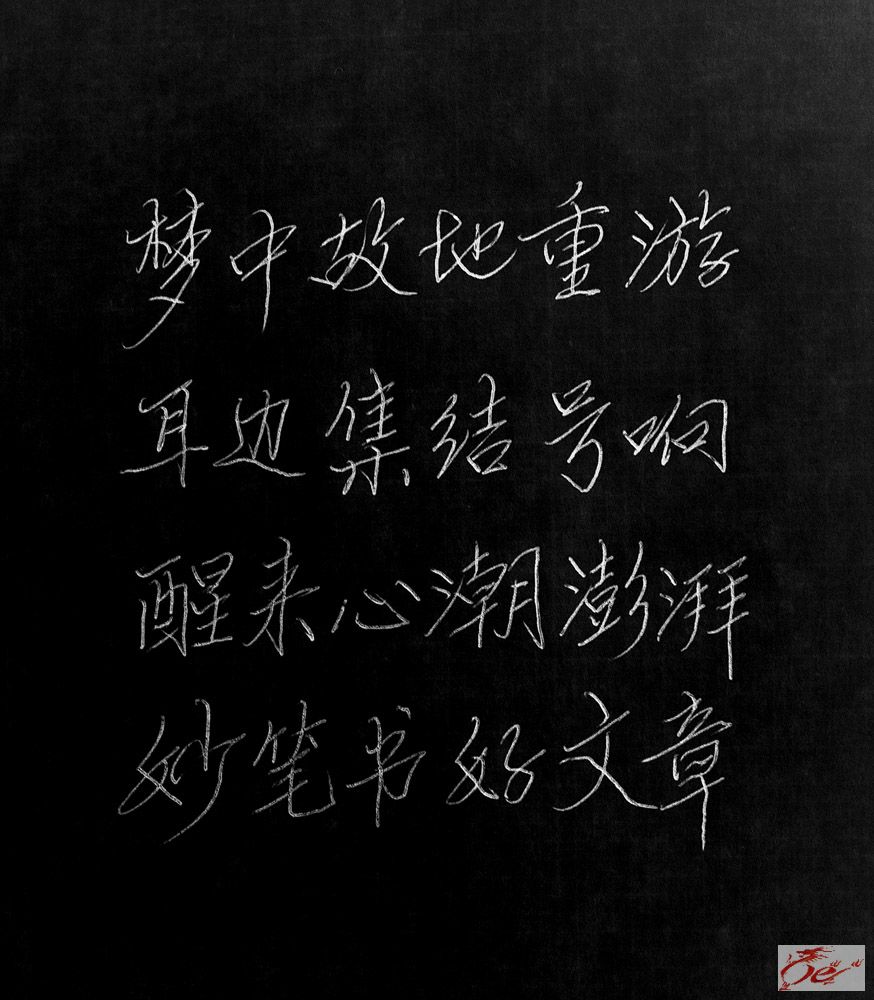 梦中故地重游
耳边集结号响
醒来心潮澎湃
妙笔书好文章